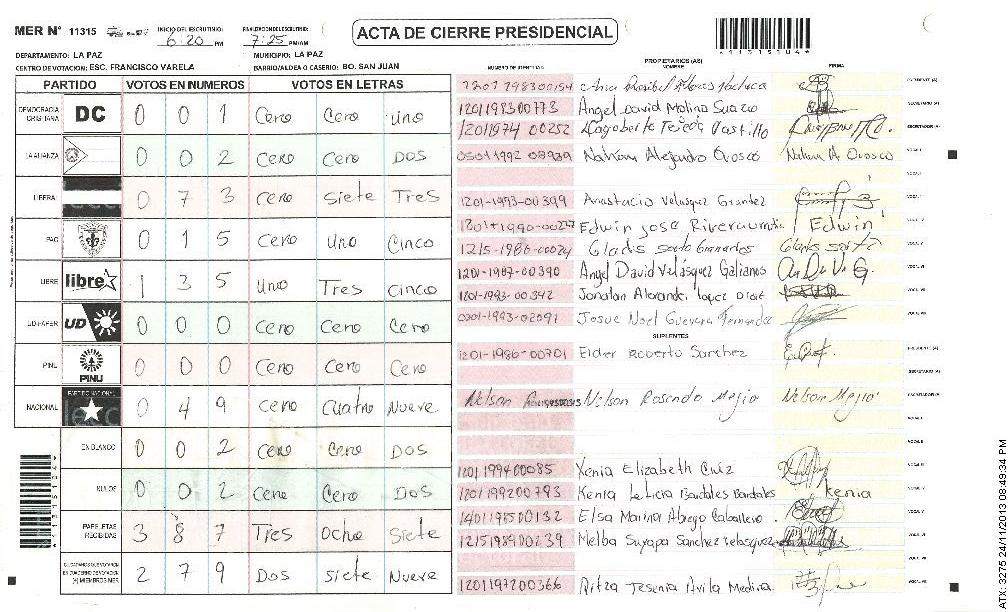 MER N° 11315
INICIO DEL ESCRUTINIO: 6:20 PM
FINALIZACION DEL ESCRUTINIO: 7:25 PM/AM
ACTA DE CIERRE PRESIDENCIAL
DEPARTAMENTO: LA PAZ
MUNICIPIO: LA PAZ
CENTRO DE VOTACION: ESC. FRANCISCO VARELA
BARRIO/ALDEA O CASERIO: BO. SAN JUAN
PARTIDO VOTOS EN NUMEROS VOTOS EN LETRAS
DEMOCRACIA CRISTIANA DC 0 0 1 Cero Cero uno
LA ALIANZA 0 0 2 cero Cero DOS
LIBERAL 0 7 3 cero siete Tres
PAC 0 1 5 Cero Uno Cinco
LIBRE libre 1 3 5 Uno Tres cinco
UD-FAPER UD 0 0 0 Cero Cero Cero
PINU PINU 0 0 0 Cero Cero Cero
NACIONAL PARTIDO NACIONAL 0 4 9 cero Cuatro Nueve
EN BLANCO 0 0 2 Cero Cero DOS
NULOS 0 0 2 Cero Cero DOS
PAPELETAS RECIBIDAS 3 8 7 Tres Ocho Siete
CIUDADANOS QUE VOTARON EN CUADERNO DE VOTACION (+) MIEMBROS MER 2 7 9 Dos siete Nueve
PROPIETARIOS (AS)
NUMERO DE IDENTIDAD NOMBRE FIRMA
PRESIDENTE (A)
120119 8300773 Angel David Molina Suazo SECRETARIO (A)
1201 1974 00252 Dagoberto Tejeda Castillo ESCRUTADOR (A)
0501 1992 08939 Nahum Alejandro Orosco Nahum A Orosco VOCAL I
VOCAL II
1201-1993-00399 Anastacio Velasquez Grandez
Edwin Jose Rivera Edwin
1215-1986-00024 Gladis
1201-1987-00390 Angel David Velásquez Galianos
1201-1993-00342 Jonatan Lopez
0301-1993-02091 Josue Noel Guevara Fernandez
SUPLENTES
1201-1986-00701 Elder Roverto Sanchez PRESIDENTE (A)
SECRETARIO (A)
Nelson Rosendo Mejia Nelson Mejia ESCRUTADOR (A)
1201 1994 00085 Xenia Elizabeth Cruz
1201 1992 00793 Kenia Leticia Bardales Bardales Kenia
1401 1985 00132 Elsa Marina Abrego Caballero
1215 1989 00239 Melba Suyapa Sanchez Velasquez
1201 1972 00366 Ritza Jesenia Avila Medina
ATX-3275 24/11/2013 08:49:34 PM